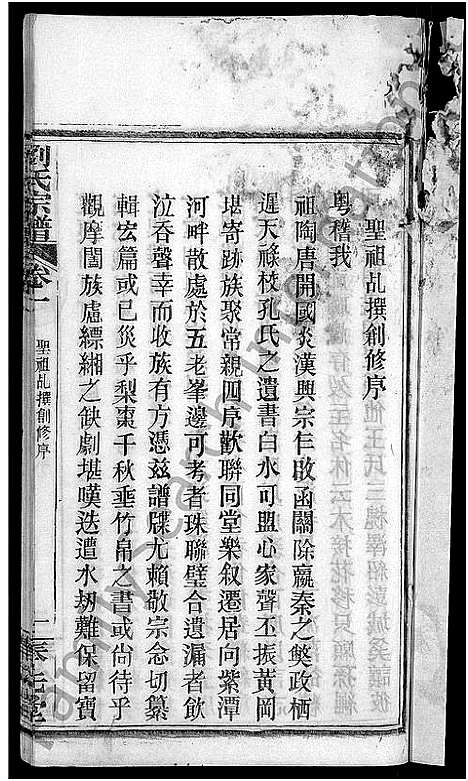 聖祖乩撰創修序
粵稽我
祖陶唐開國炎漢興宗仁啟函關除嬴秦之獘政栖
遲天祿校孔氏之遺書白水可盟心家聲丕振黃岡
堪寄跡族聚常親四序歡聯同堂樂叙遷居向紫潭
河畔散處於五老峯邊可考者珠聯璧合遺漏者飲
泣吞聲幸而收族有方憑茲譜牒尤賴敬宗念切纂
輯宏篇或已災乎梨棗千秋垂竹帛之書或尚待乎
觀摩闔族虛縹緗之缺劇堪嘆迭遭水刼難保留寶
劉氏宗譜
卷一
聖祖乩撰創修序
一